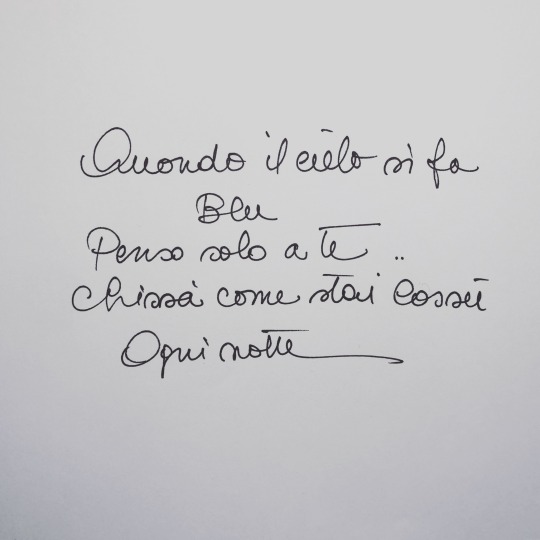 Quando il cielo si fa
Blu
Penso solo a te ..
Chissà come stai lassù
Ogni notte